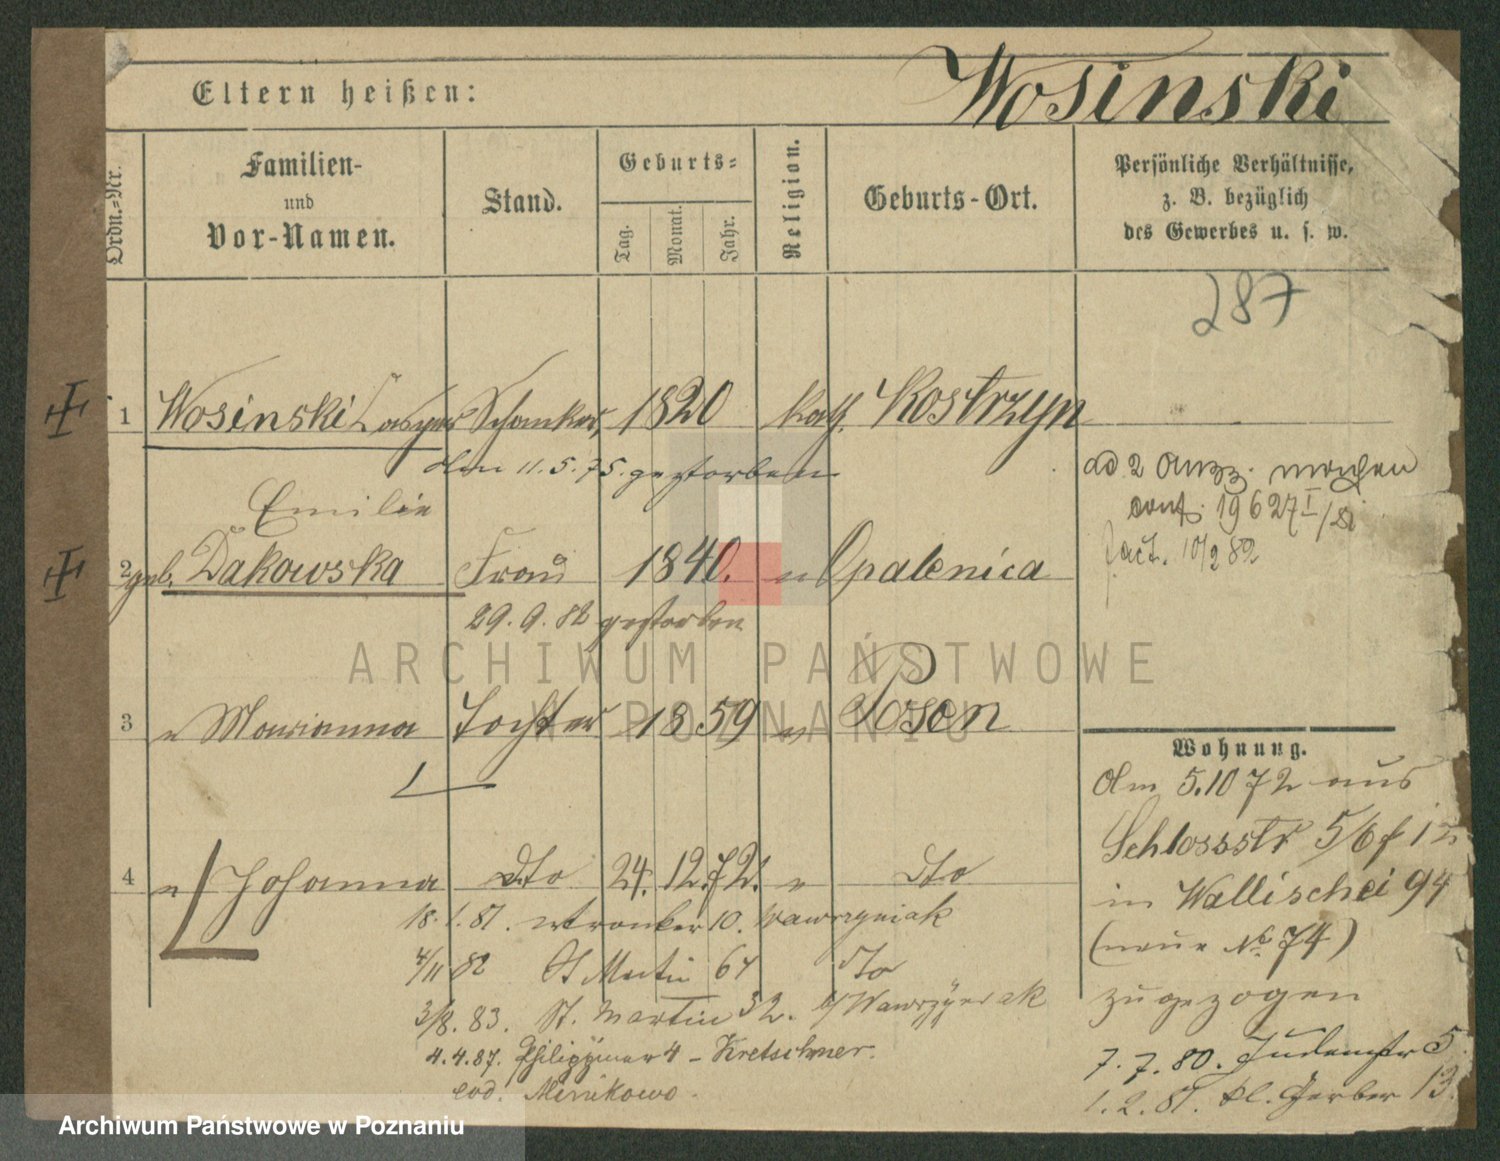 Eltern heißen: Wosinski
Ordn.-Nr. Familien- und Vor-Namen. Stand. Geburts- Tag. Monat. Jahr. Religion. Geburts-Ort. Persönliche Verhältnisse, z. B. bezüglich des Gewerbes u. s. w.
287
1 Wosinski Casper Schanker, 1820 kath. Kostrzyn
den 11.5.75. gestorben
ad 2
Emilie
cont. 19627 I/81
2 geb. Dakowska Frau 1840. " Opalenica
fact. 10/2 82
29.9.82 gestorben
3 " Marianna Tochter 1859 " Posen
Wohnung.
Am 5.10 72 aus
Schlossstr 5/6
4 " Johanna dto 24. 12. 72. " dto
in Wallischei 94
18.1.81. 10. Wawrzyniak
(neue No 74)
4/11 82 St Martin 64 dto
zugezogen
3/8. 83. St. Martin 32. b/ Wawrzyniak
4.4.87. 4 - Kretschmer.
7.7.80. Judenstr 5.
eod. Minikowo.
1.2.81. kl. Gerber 13.
ARCHIWUM PAŃSTWOWE
W POZNANIU
Archiwum Państwowe w Poznaniu